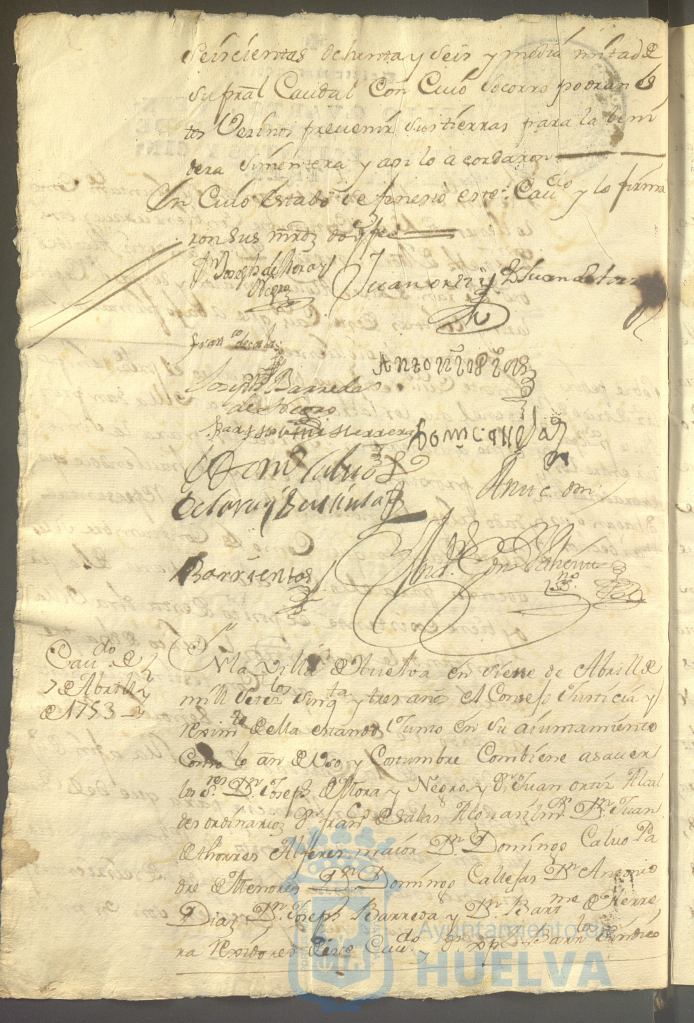 Seiscientas ochenta y seis y media mitad de
su pral Caudal Con Cuio Socorro podran es
tos Vesinos prevenir sus tierras para la beni
dera simentera y asi lo acordaron
En Cuio estado se feneció este Cavdo y lo firma
ron sus mrds doy fee
Joseph de Mora y
Negro
Juan ortiz
Dn Juan de torres
franco de salas
Antonio Dias
Joseph Barreda
Bartolome Herrera
Domo Callejas
Domo Calvo
Octavio y Bentura
Ante mi
Barrientos
Anto
Cavdo de
7 de Abril
de 1753
En la Villa de Huelva en siete de Abril de
mill setezos sinqta y tres años el Consejo Justicia y
Reximto de ella estando Junto en su aiuntamiento
Como lo an de Uso y Costumbre Combiene a saver
los Sres Dn Joseph de Mora y Negro, y Dn Juan ortiz Alcal
des ordinarios Dn franco de Salas Dn Juan
de thorres Alferes maior Dn Domingo Calvo Pa
dre de Menores Dn Domingo Callejas Dn Antonio
Dias Dn Joseph Barreda y Dn Bartme de Herre
ra Rexidores de este Cavdo y
Ayuntamiento de
HUELVA